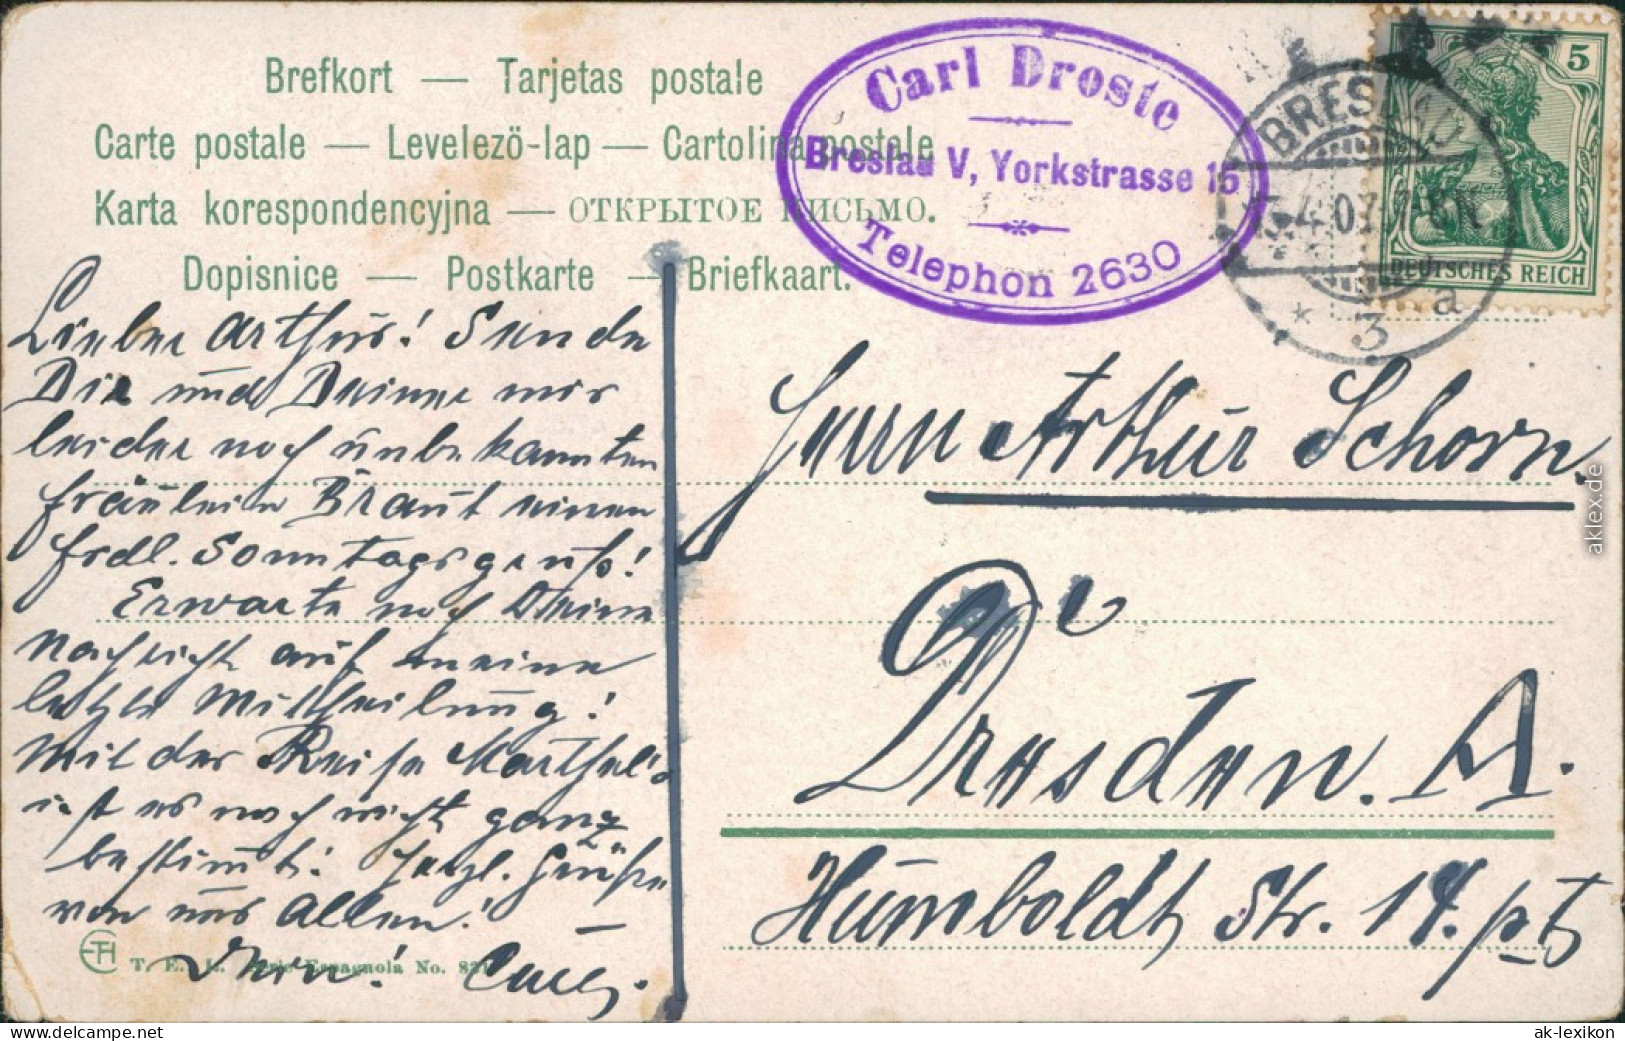 Brefkort — Tarjetas postale
Carte postale — Levelezö-lap — Cartolina postale
Karta korespondencyjna — ОТКРЫТОЕ ПИСЬМО.
Dopisnice — Postkarte — Briefkaart.
Carl Droste
Breslau V, Yorkstrasse 15
Telephon 2630
BRESLAU
* 3 a
5
DEUTSCHES REICH
Lieber Arthur! Sende
Dir und Deiner mir
leider noch unbekannten
Fräulein Braut einen
frdl. Sonntagsgruß!
Erwarte noch Deine
Nachricht auf meine
letzte Mittheilung!
Mit der Reise
ist es noch nicht ganz
bestimmt. Herzl. Grüße
von uns Allen!
Dein! Carl.
Herrn Arthur Schorn.
Dresden. A.
Humboldt Str. 14. pt
T. E. L. Serie Espagnola No.
aklex.de
www.delcampe.net
ak-lexikon